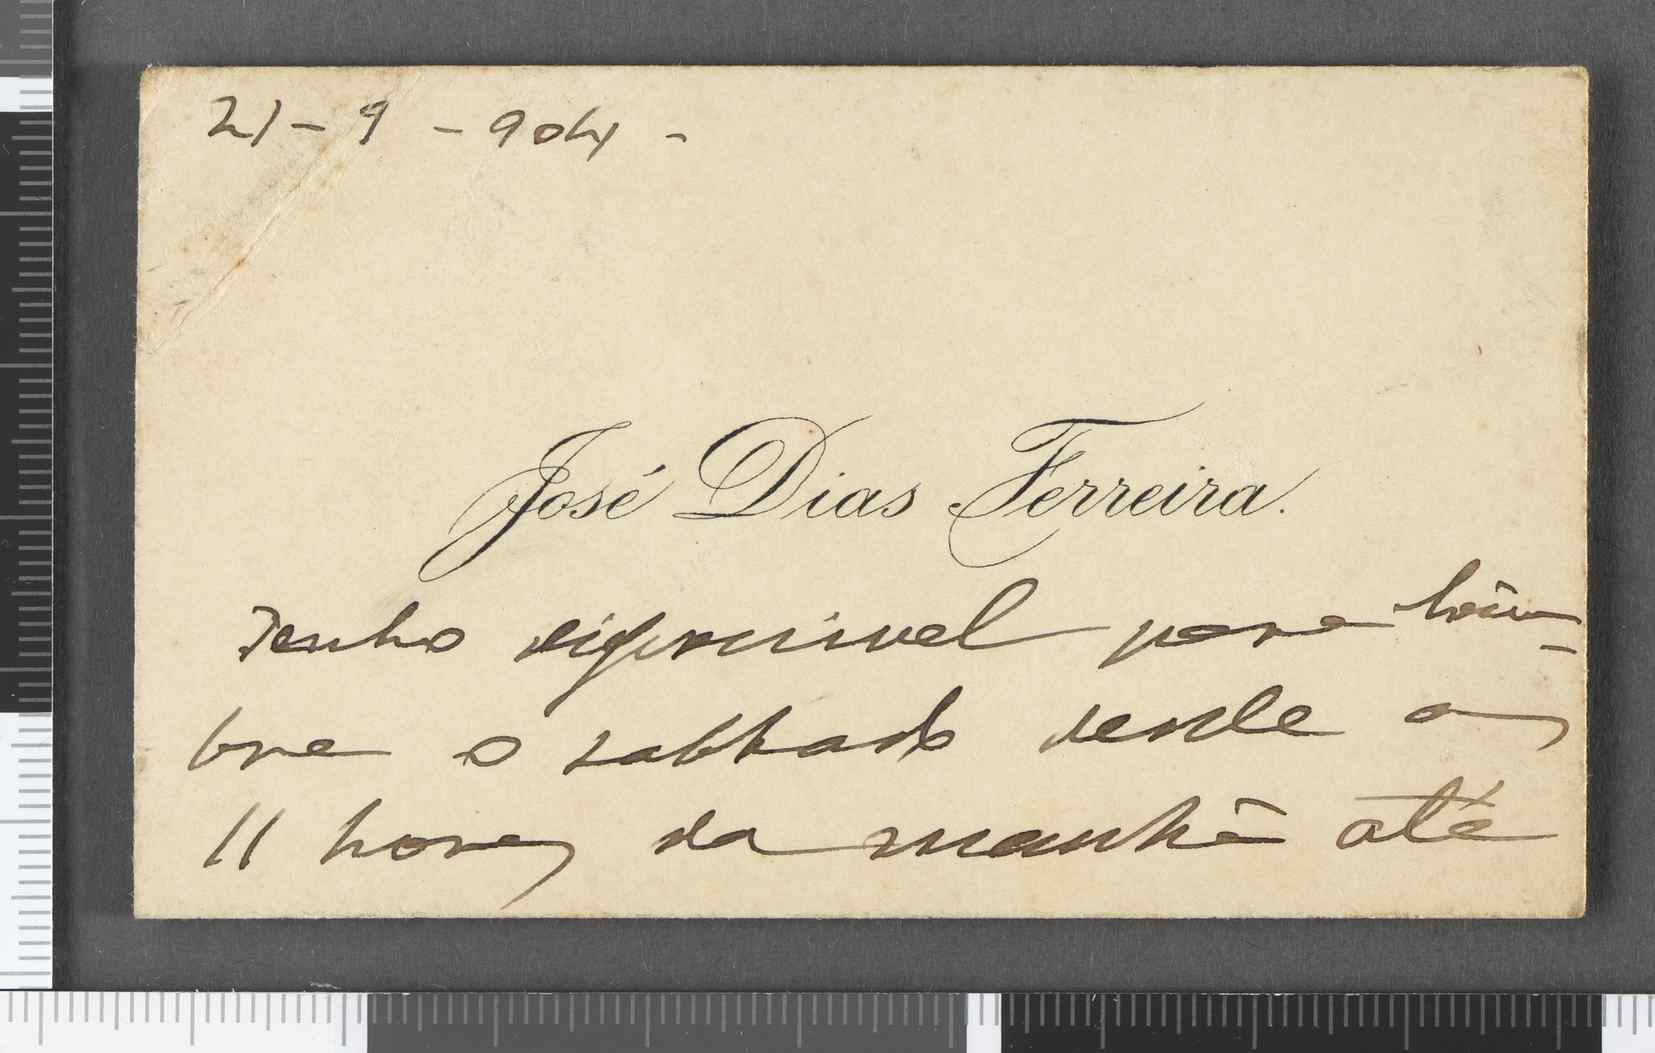 21-9-904-
José Dias Ferreira.
Tenho disponivel para Coim-
bra o sabbado desde as
11 horas da manhã até